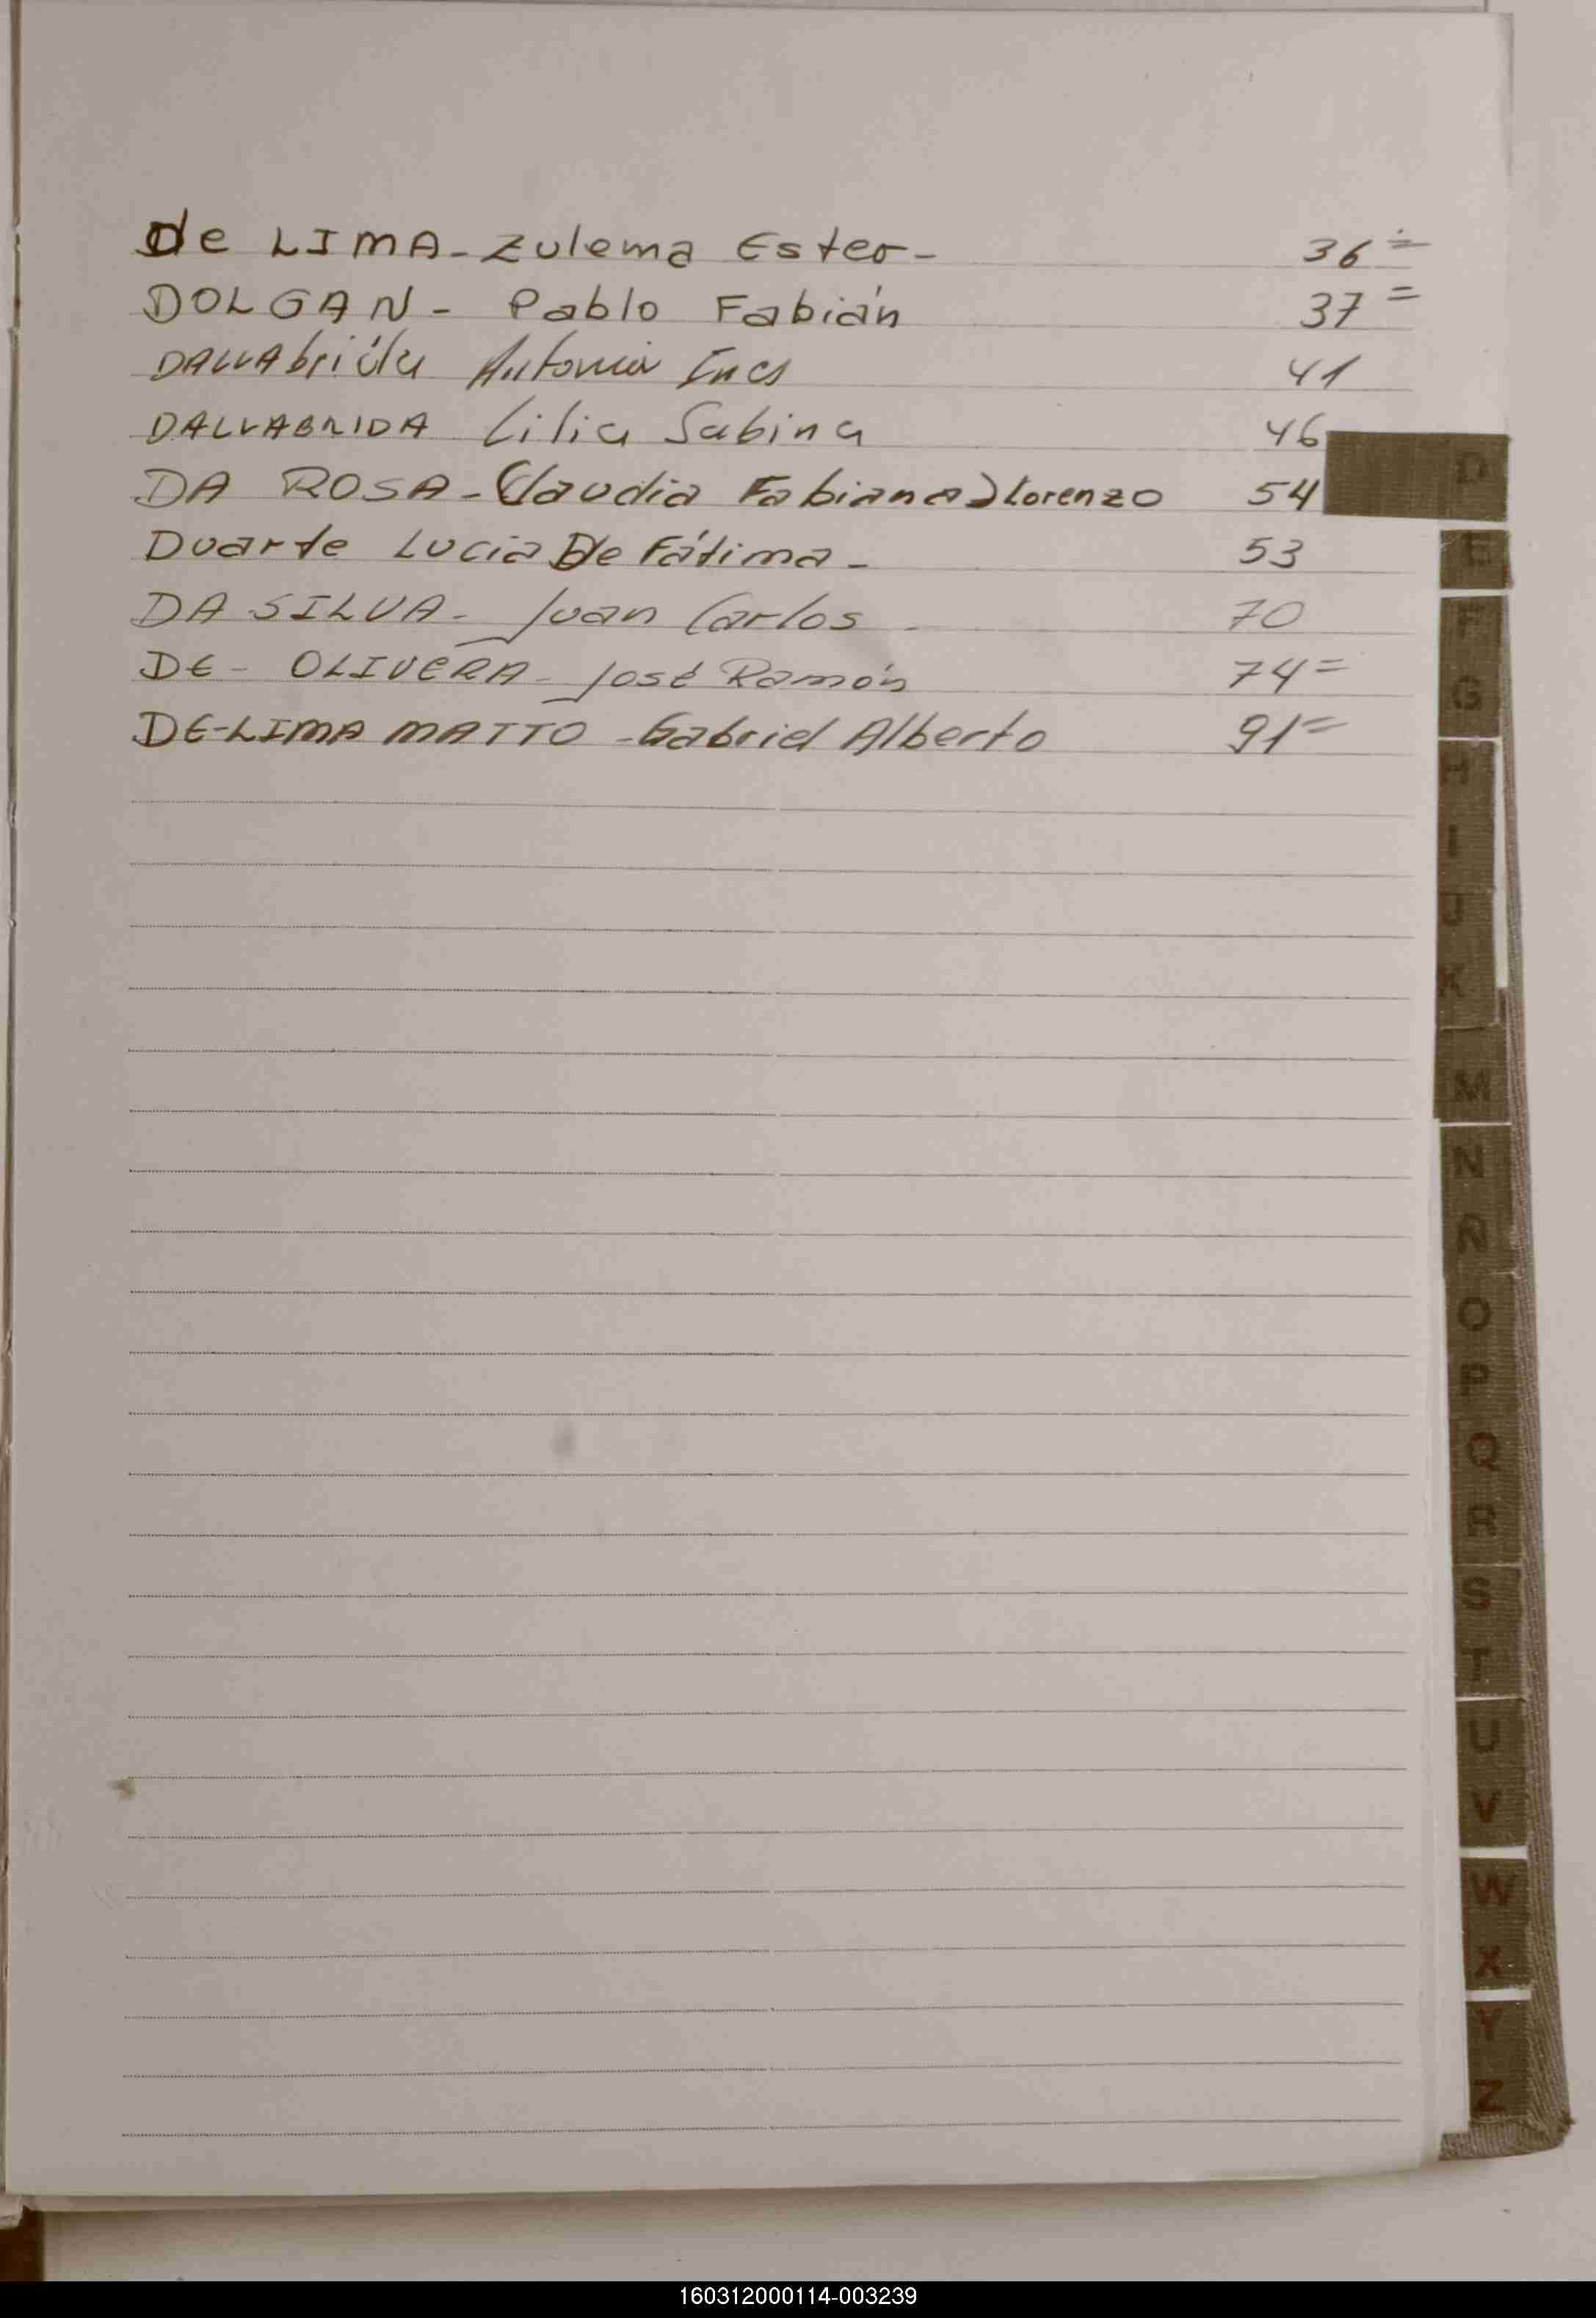 De LIMA - Zulema Ester - 36=
DOLGAN - Pablo Fabián 37=
DALLAbrida Antonia Ines 41
DALLABRIDA Lilia Sabina 46
DA ROSA - Claudia Fabiana) Lorenzo 54
Duarte Lucia De Fátima - 53
DA SILVA - Juan Carlos - 70
DE - OLIVERA - José Ramón 74=
DE-LIMA MATTO - Gabriel Alberto 91=
D
E
F
G
H
I
J
K
M
N
Ñ
O
P
Q
R
S
T
U
V
W
X
Y
Z
160312000114-003239